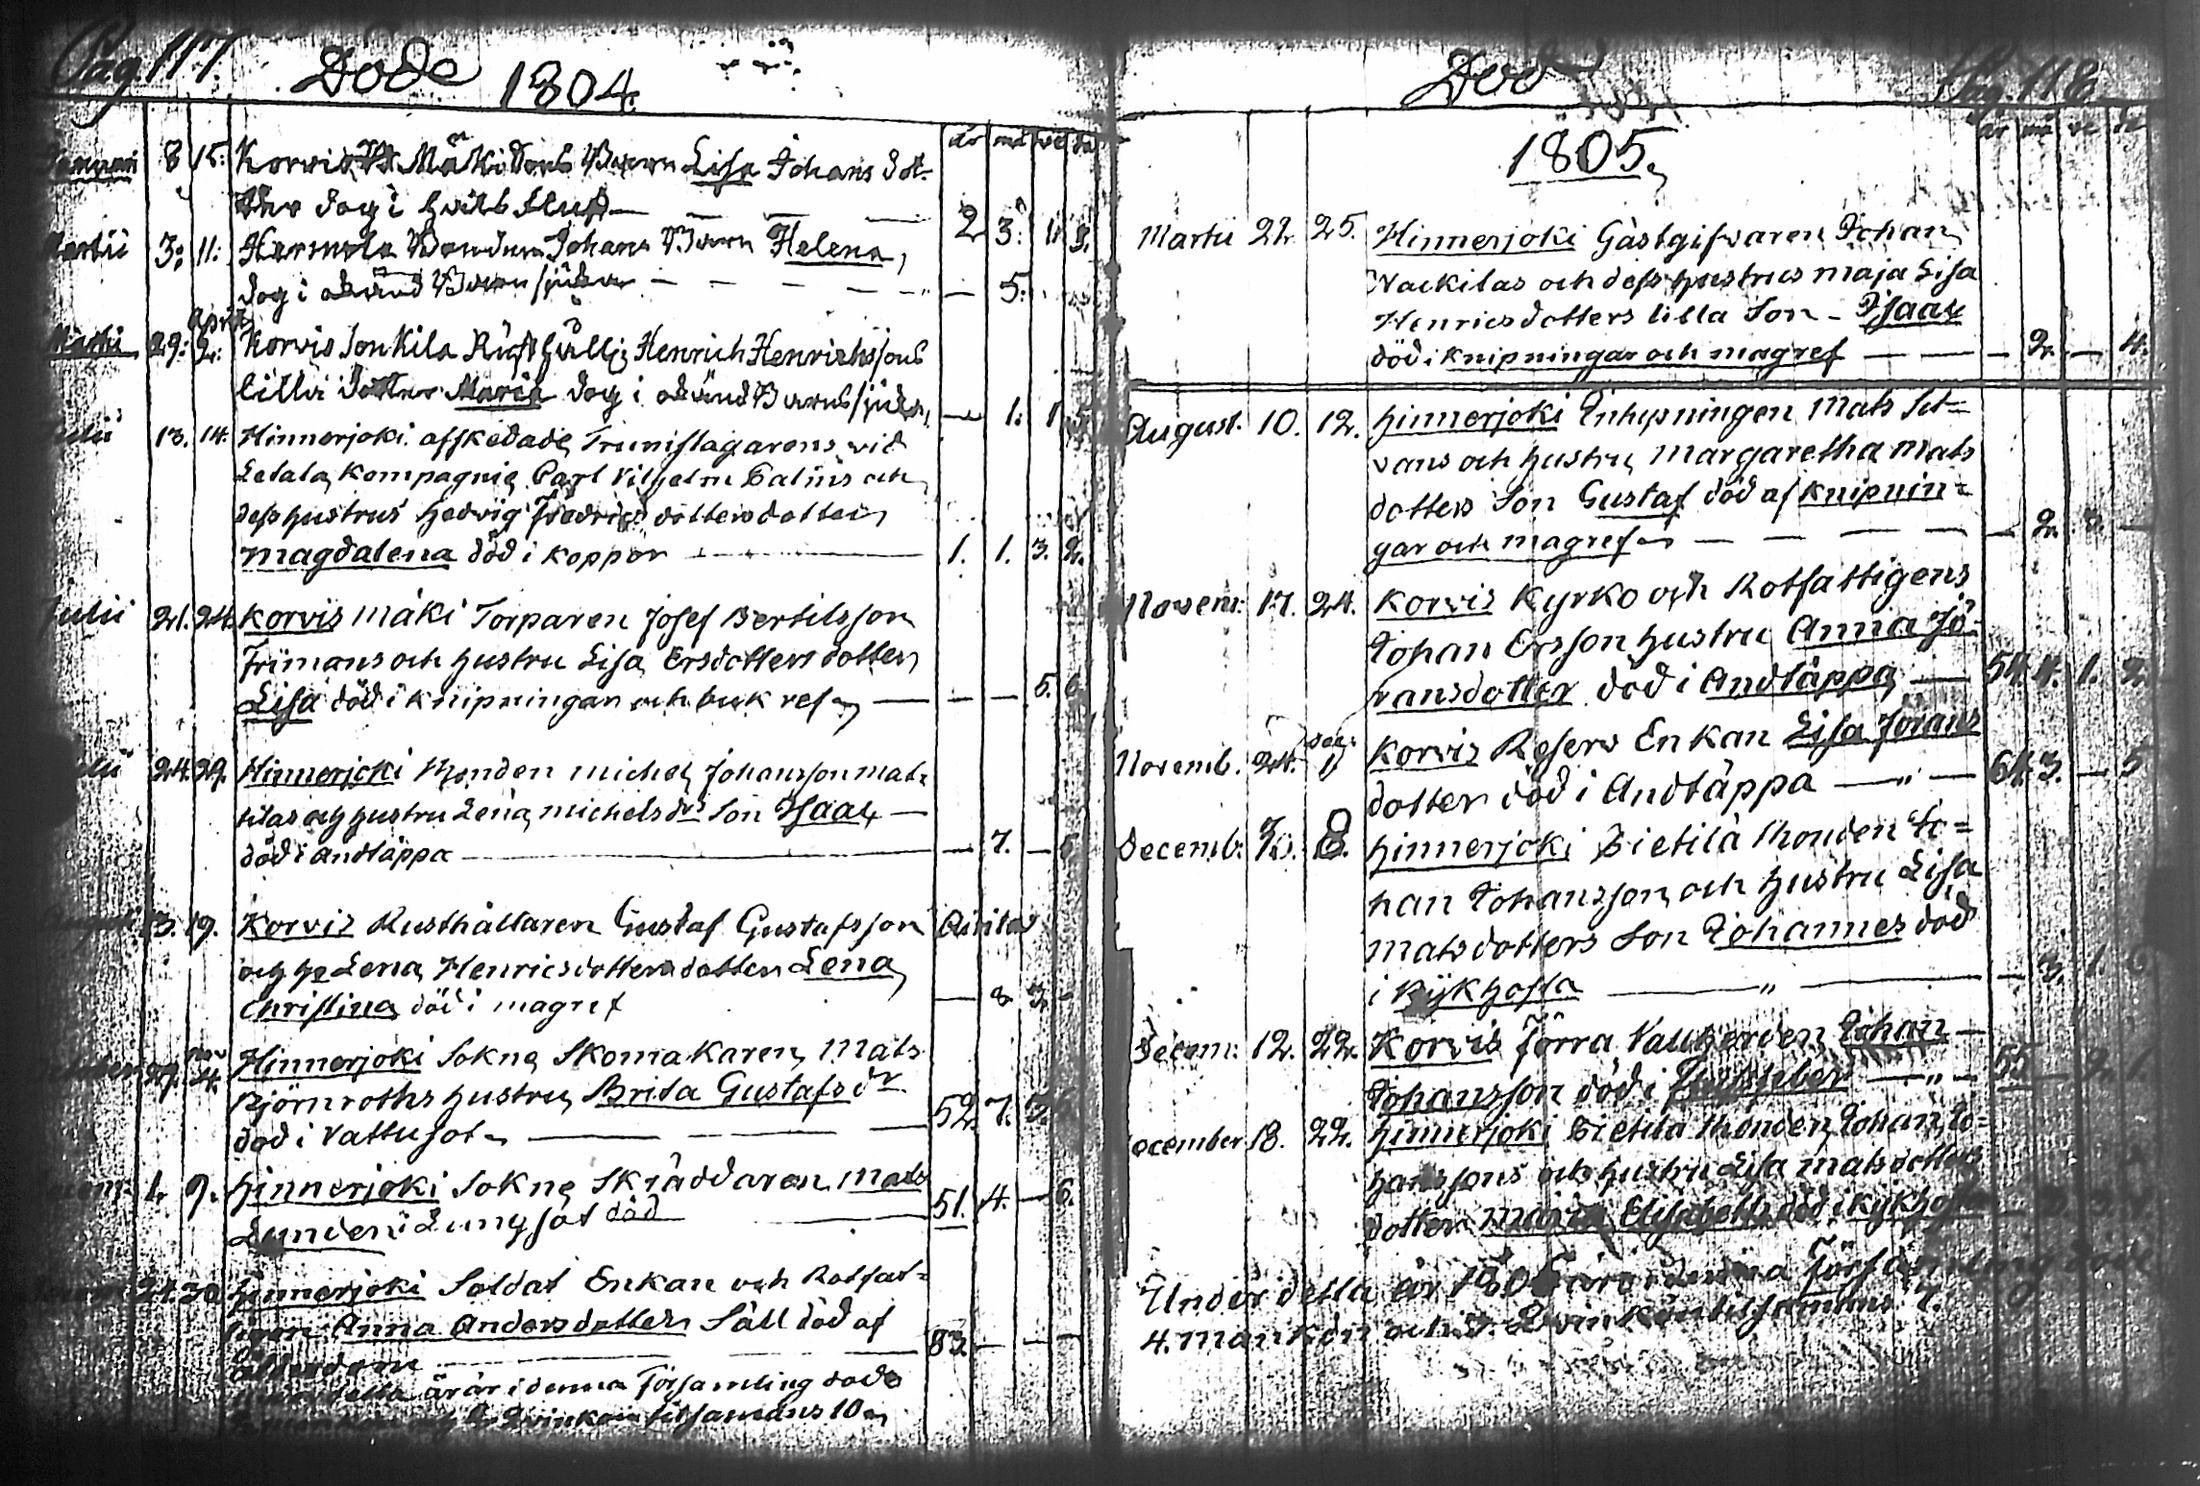 Pag. 117. Döde 1804.
år må ve da
Januari 8 15. Korvis Mäki Barn Lisa Johans dot-
ter dog i 2 3. 1. 3.
Martii 3. 11. Bonden Johans Barn Helena,
dog i okänd Barnsjuka — 5.
April
Martii 29. 2. Korvis Jonkila Rusthållj Henrich Henrichssons
lilla dotter Maria dog i okänd Barnsjuka, — 1. 1. 5.
Julii 13. 14. Hinnerjoki afskedade Trumslagarens vid
Letala Kompagnie Carl Vilhelm Palins och
dess hustrus Hedvig Fredrics dotters dotter
Magdalena död i koppor — 1. 1. 3. 2.
Julii 21. 24. Korvis Mäki Torparen Josef Bertilsson
Frimans och hustru Lisa Ersdotters dotter
Lisa död i knipningar och bukref — — — 5. 6.
24. 29. Hinnerjoki Bonden Michel Johansson Mat-
tilas och hustru Lena Michels dr son Isaac —
död i andtäppa — — 7. — 6.
13. 19. Korvis Rusthållaren Gustaf Gustafsson
och hu Lena Henricsdotters dotter Lena
Christina död i magref — 2. 3. -
29. 4. Hinnerjoki Sokne Skomakaren Mats
Björnroths hustru Brita Gustafs dr
död i Vattusot — 52. 7. 3.
1. 9. Hinnerjoki Sokne Skräddaren Mats
Lunden i Lungsot död 51. 4. — 6.
21. 30. Hinnerjoki Soldat Enkan och Rotfat-
tigen Anna Andersdotter Säll död af
Ålderdom — 83. — —
detta år är i denna Församling döde
Qvinkön tilsamans 10
Död Pag. 118
år må ve da
1805.
Martii 22. 25. Hinnerjoki Gästgifvaren Johan
Nackilas och dess hustrus Maja Lisa
Henricsdotters lilla Son - Isaac
död i knipningar och magref — — 2. — 4.
August. 10. 12. Hinnerjoki Inhysningen Mats
vans och hustru Margaretha Mats
dotters Son Gustaf död af knipnin-
gar och magref — — 2. 3. —
Novem: 17. 24. Korvis Kyrko och Rotfattigens
Johan Ersson hustru Anna Jö-
ransdotter död i Andtäppa — 54. 4. 1. 2.
dec:
Novemb. 24. 1 Korvis Reserv Enkan Lisa Jörans
dotter död i Andtäppa — " — 64. 3. — 5
Decemb. 8. Hinnerjoki Pietilä Bonden Jo-
han Johansson och hustru Lisa
Matsdotters Son Johannes död
i Kykhosta — " — 3. 1.
Decem: 12. 22. Korvis förra Johan —
Johansson död i — " — 55 — 2. 1.
December 18. 22. Hinnerjoki Pietilä Bonden Johan Jo-
hanssons och hustru Lisa Matsdotters
dotter Maria Elisabetha död i Kykhosta
Under detta år 1805 äro i denna Församling döde
4. mankön och 3. Qvinkön tilsamans 7.